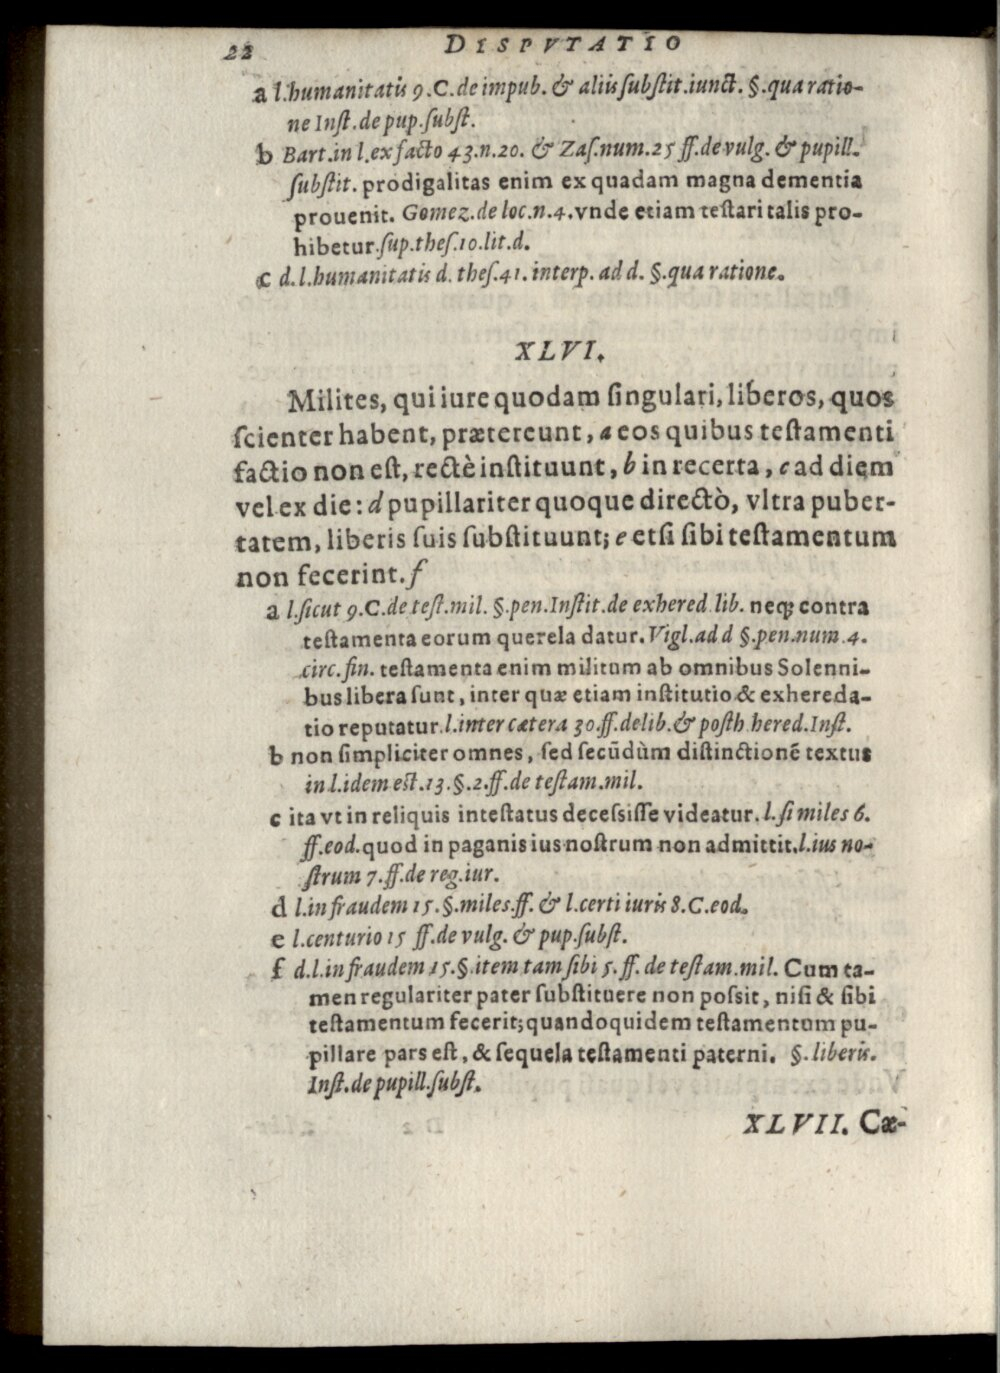 22 DISPVTATIO
a l.humanitatis 9.C.de impub. & aliis ſubſtit.iunct. §.qua ratio-
ne Inſt.de pup.ſubſt.
b Bart.in l.ex facto 43.n.20. & Zaſ.num.25 ff.de vulg. & pupill.
ſubſtit. prodigalitas enim ex quadam magna dementia
prouenit. Gomez.de loc.n.4.vnde etiam teſtari talis pro-
hibetur.ſup.theſ.10.lit.d.
c d.l.humanitatis d. theſ.41. interp. ad d. §.qua ratione.
XLVI.
Milites, qui iure quodam ſingulari, liberos, quos
ſcienter habent, prætereunt, a eos quibus teſtamenti
factio non eſt, rectè inſtituunt, b in re certa, c ad diem
vel ex die: d pupillariter quoque directò, vltra puber-
tatem, liberis ſuis ſubſtituunt; e etſi ſibi teſtamentum
non fecerint. f
a l.ſicut 9.C.de teſt.mil. §.pen.Inſtit.de exhered.lib. neq; contra
teſtamenta eorum querela datur. Vigl.ad d §.pen.num.4.
circ.fin. teſtamenta enim militum ab omnibus Solenni-
bus libera ſunt, inter quæ etiam inſtitutio & exhereda-
tio reputatur.l.inter cætera 30.ff.de lib.& poſth hered.Inſt.
b non ſimpliciter omnes, ſed ſecūdùm diſtinctionē textus
in l.idem eſt.13.§.2.ff.de teſtam.mil.
c ita vt in reliquis inteſtatus deceſsiſſe videatur. l.ſi miles 6.
ff.eod.quod in paganis ius noſtrum non admittit.l.ius no-
ſtrum 7.ff.de reg.iur.
d l.in fraudem 15.§.miles.ff. & l.certi iuris 8.C.eod.
e l.centurio 15 ff.de vulg. & pup.ſubſt.
f d.l.in fraudem 15.§.item tam ſibi 5.ff. de teſtam.mil. Cum ta-
men regulariter pater ſubſtituere non poſsit, niſi & ſibi
teſtamentum fecerit; quandoquidem teſtamentum pu-
pillare pars eſt, & ſequela teſtamenti paterni. §.liberis.
Inſt.de pupill.ſubſt.
XLVII. Cæ-